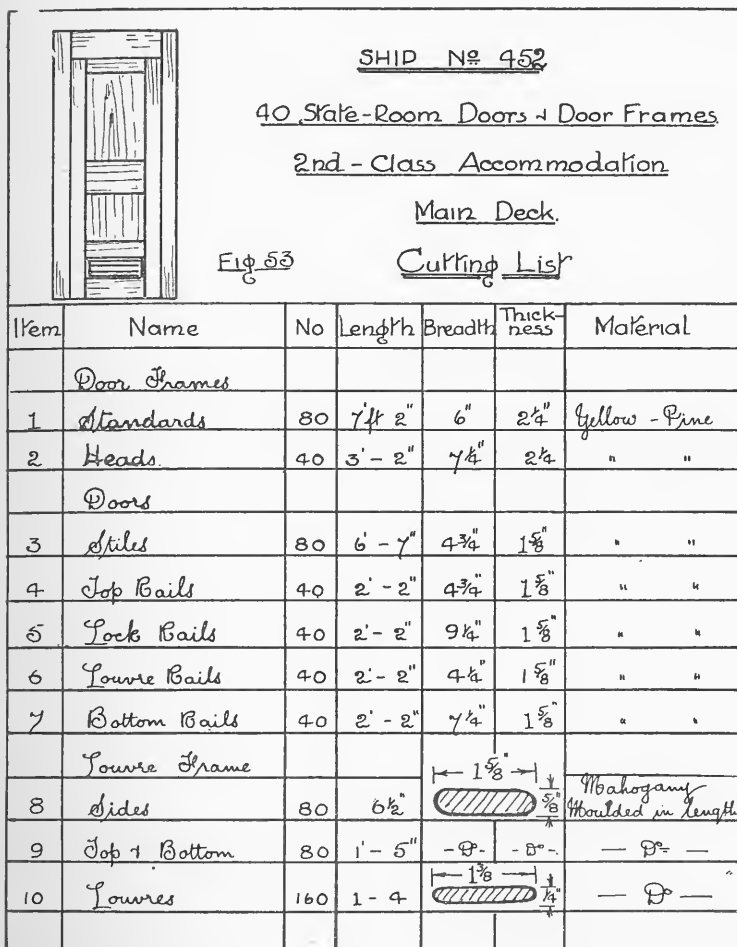 SHIP Nº 452
40 State-Room Doors & Door Frames
2nd-Class Accommodation
Main Deck.
Fig 53
Cutting List
Item Name No Length Breadth Thick-ness Material
Door Frames
1 Standards 80 7'ft 2" 6" 2¼" Yellow-Pine
2 Heads. 40 3'-2" 7¼" 2¼ " "
Doors
3 Stiles 80 6'-7" 4¾" 1⅝" " "
4 Top Rails 40 2'-2" 4¾" 1⅝" " "
5 Lock Rails 40 2'-2" 9¼" 1⅝" " "
6 Louvre Rails 40 2'-2" 4¼" 1⅝" " "
7 Bottom Rails 40 2'-2" 7¼" 1⅝" " "
Louvre Frame
8 Sides 80 6½" 1⅝" ⅝" Mahogany Moulded in length
9 Top & Bottom 80 1'-5" -Dº- -Dº- — Dº —
10 Louvres 160 1-4 1⅜" ¼" — Dº —